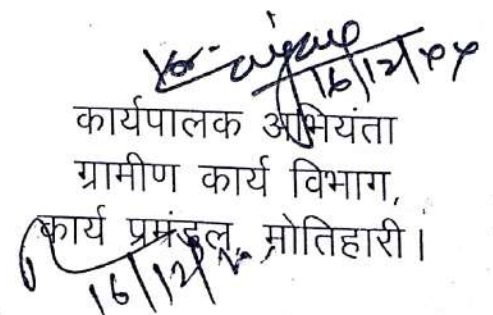 16/12/
कार्यपालक अभियंता
ग्रामीण कार्य विभाग,
कार्य प्रमंडल, मोतिहारी।
16/12/